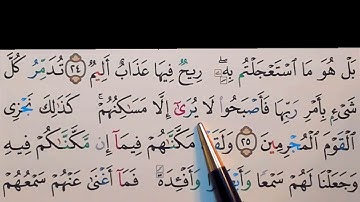 بَلْ هُوَ مَا ٱسْتَعْجَلْتُم بِهِۦۖ رِيحٌ فِيهَا عَذَابٌ أَلِيمٌ ٢٤ تُدَمِّرُ كُلَّ
شَىْءٍۭ بِأَمْرِ رَبِّهَا فَأَصْبَحُوا۟ لَا يُرَىٰٓ إِلَّا مَسَٰكِنُهُمْۚ كَذَٰلِكَ نَجْزِى
ٱلْقَوْمَ ٱلْمُجْرِمِينَ ٢٥ وَلَقَدْ مَكَّنَّٰهُمْ فِيمَآ إِن مَّكَّنَّٰكُمْ فِيهِ
وَجَعَلْنَا لَهُمْ سَمْعًا وَأَبْصَٰرًا وَأَفْـِٔدَةً فَمَآ أَغْنَىٰ عَنْهُمْ سَمْعُهُمْ